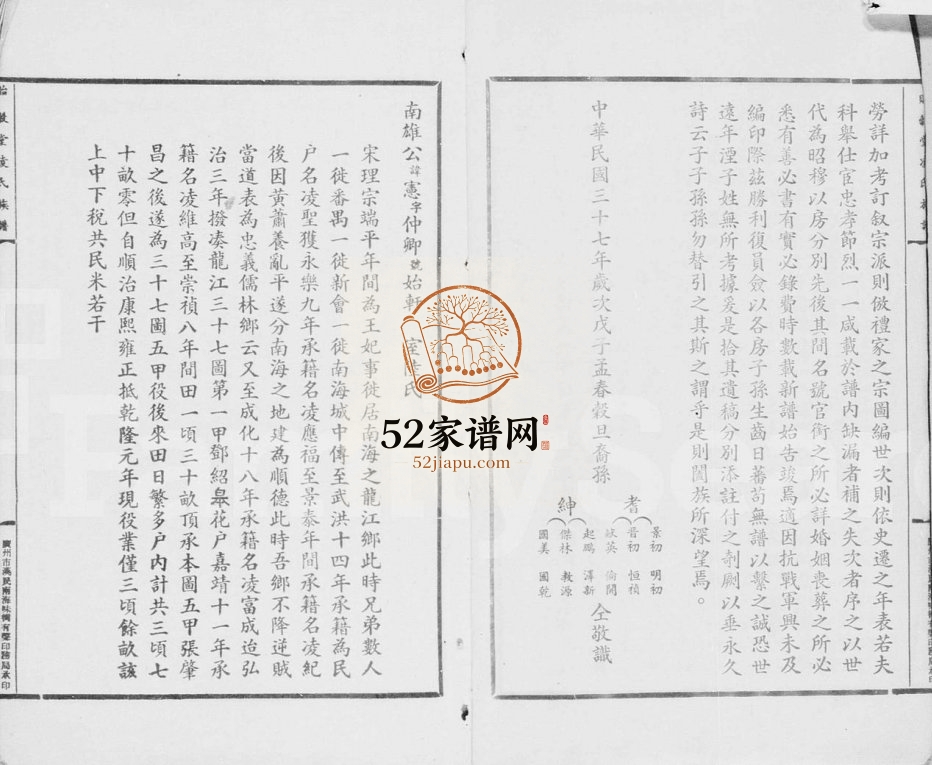 勞詳加考訂叙宗派則倣禮家之宗圖編世次則依史遷之年表若夫
科舉仕宦忠孝節烈一一咸載於譜內缺漏者補之失次者序之以世
代為昭穆以房分別先後其間名號官銜之所必詳婚姻喪葬之所必
悉有善必書有實必錄費時數載新譜始告竣焉適因抗戰軍興未及
編印際茲勝利復員僉以各房子孫生齒日蕃苟無譜以繫之誠恐世
遠年湮子姓無所考據爰是拾其遺稿分別添註付之剞劂以垂永久
詩云子子孫孫勿替引之其斯之謂乎是則闔族所深望焉。
耆
景初 明初
晉初 恒禎
紳
起鵬 澤新
傑林 教源
國美 國乾
仝敬識
中華民國三十七年歲次戊子孟春穀旦裔孫
南雄公諱憲字仲卿號始軒 室陳氏
宋理宗端平年間為王妃事徙居南海之龍江鄉此時兄弟數人
一徙番禺一徙新會一徙南海城中傳至武洪十四年承籍為民
户名凌聖獲永樂九年承籍名凌應福至景泰年間承籍名凌紀
後因黄蕭養亂平遂分南海之地建為順德此時吾鄉不降逆賊
當道表為忠義儒林鄉云又至成化十八年承籍名凌富成迨弘
治三年撥凑龍江三十七圖第一甲鄧紹皋花户嘉靖十一年承
籍名凌維高至崇禎八年間田一頃三十畝頂承本圖五甲張肇
昌之後遂為三十七圖五甲役後來田日繁多户內計共三頃七
十畝零但自順治康熙雍正抵乾隆元年現役業僅三頃餘畝該
上中下稅共民米若干
堂凌氏族譜
廣州市漢民南海味街有聲印務局承印
52家谱网
52jiapu.com